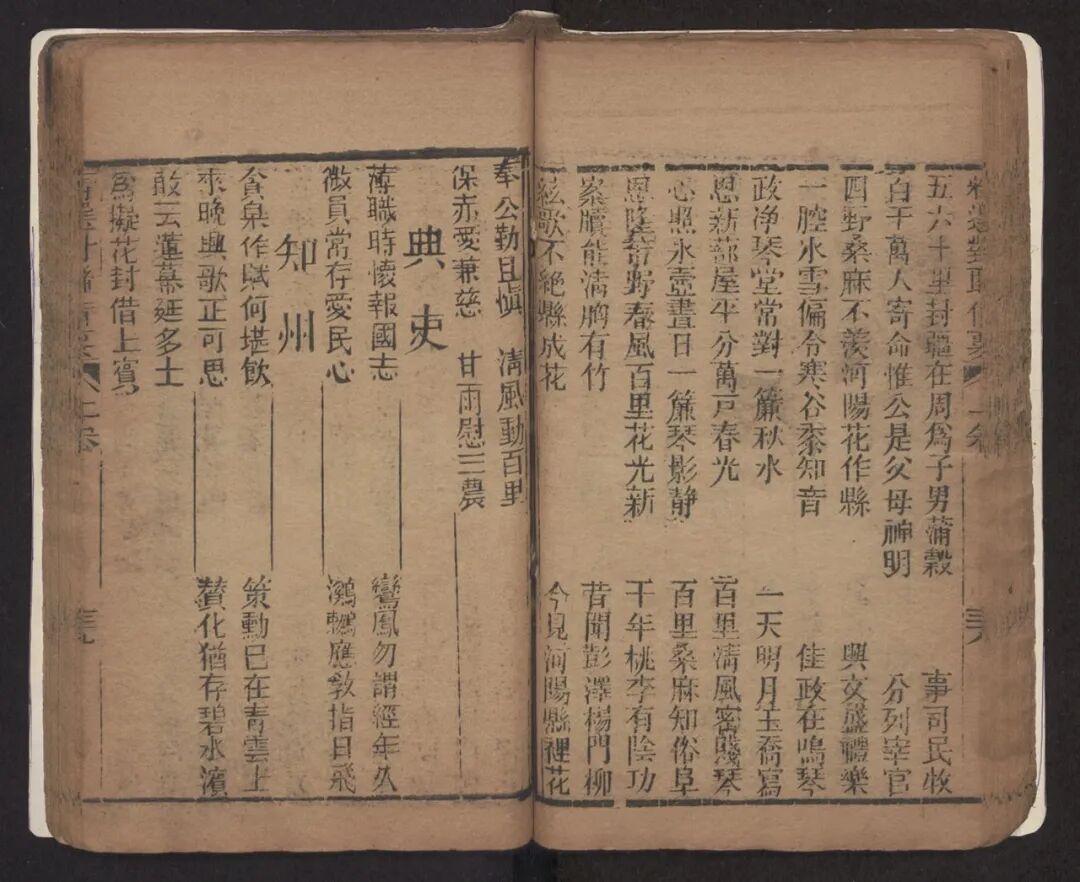 五六十里封疆在周爲子男蒲穀 事司民牧
百千萬人寄命惟公是父母神明 分列宰官
四野桑麻不羨河陽花作縣 興文盛禮樂
一腔氷雪偏令寒谷黍知音 佳政在鳴琴
政净琴堂常對一簾秋水 一天明月玉喬寫
恩新蔀屋平分萬戸春光 百里清風客琴
心照氷壺晝日一簾琴影靜 百里桑麻知俗阜
恩隆野春風百里花光新 千年桃李有陰功
案牘能清胸有竹 昔聞彭澤楊門柳
絃歌不絕縣成花 今見河陽縣裡花
奉公勤且愼 淸風動百里
保赤愛兼慈 甘雨慰三農
典吏
薄職時懷報國志 鸞鳳勿謂經年久
微員常存愛民心 鸂鶒應教指日飛
知州
貪泉作賦何堪飲 策勳已在青雲上
來晚興歌正可思 贊化猶存碧水濱
敢云蓮幕延多士
爲擬花封借上賓